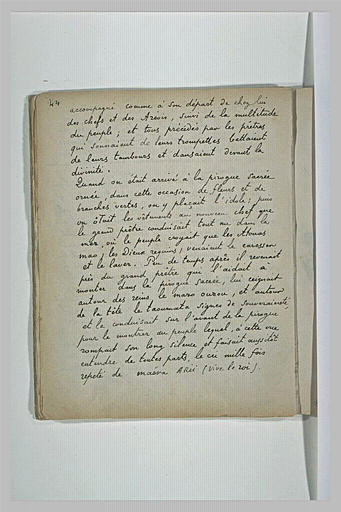 44
accompagné comme à son départ de chez lui
des chefs et des Areois, suivi de la multitude
du peuple; et tous précédés par les prêtres
qui sonnaient de leurs trompettes battaient
de leurs tambours et dansaient devant la
divinité.
Quand on était arrivé à la pirogue sacrée
ornée, dans cette occasion de fleurs et de
branches vertes, on y plaçait l'idole; puis
on ôtait les vêtements au nouveau chef que
le grand prêtre conduisait tout nu dans la
mer, où le peuple croyait que les Atouas
mao, les Dieux requins, venaient le caresser
et le laver. Peu de temps après il revenait
près du grand prêtre qui l'aidait à
monter dans la pirogue sacrée, lui ceignait
autour des reins, le maro ourou, et autour
de la tête le taoumata signes de Souveraineté
et le conduisait sur l'avant de la pirogue
pour le montrer au peuple lequel, à cette vue,
rompait son long silence et faisait aussitôt
entendre de toutes parts, le cri mille fois
répété de maeva ARii (vive le roi).